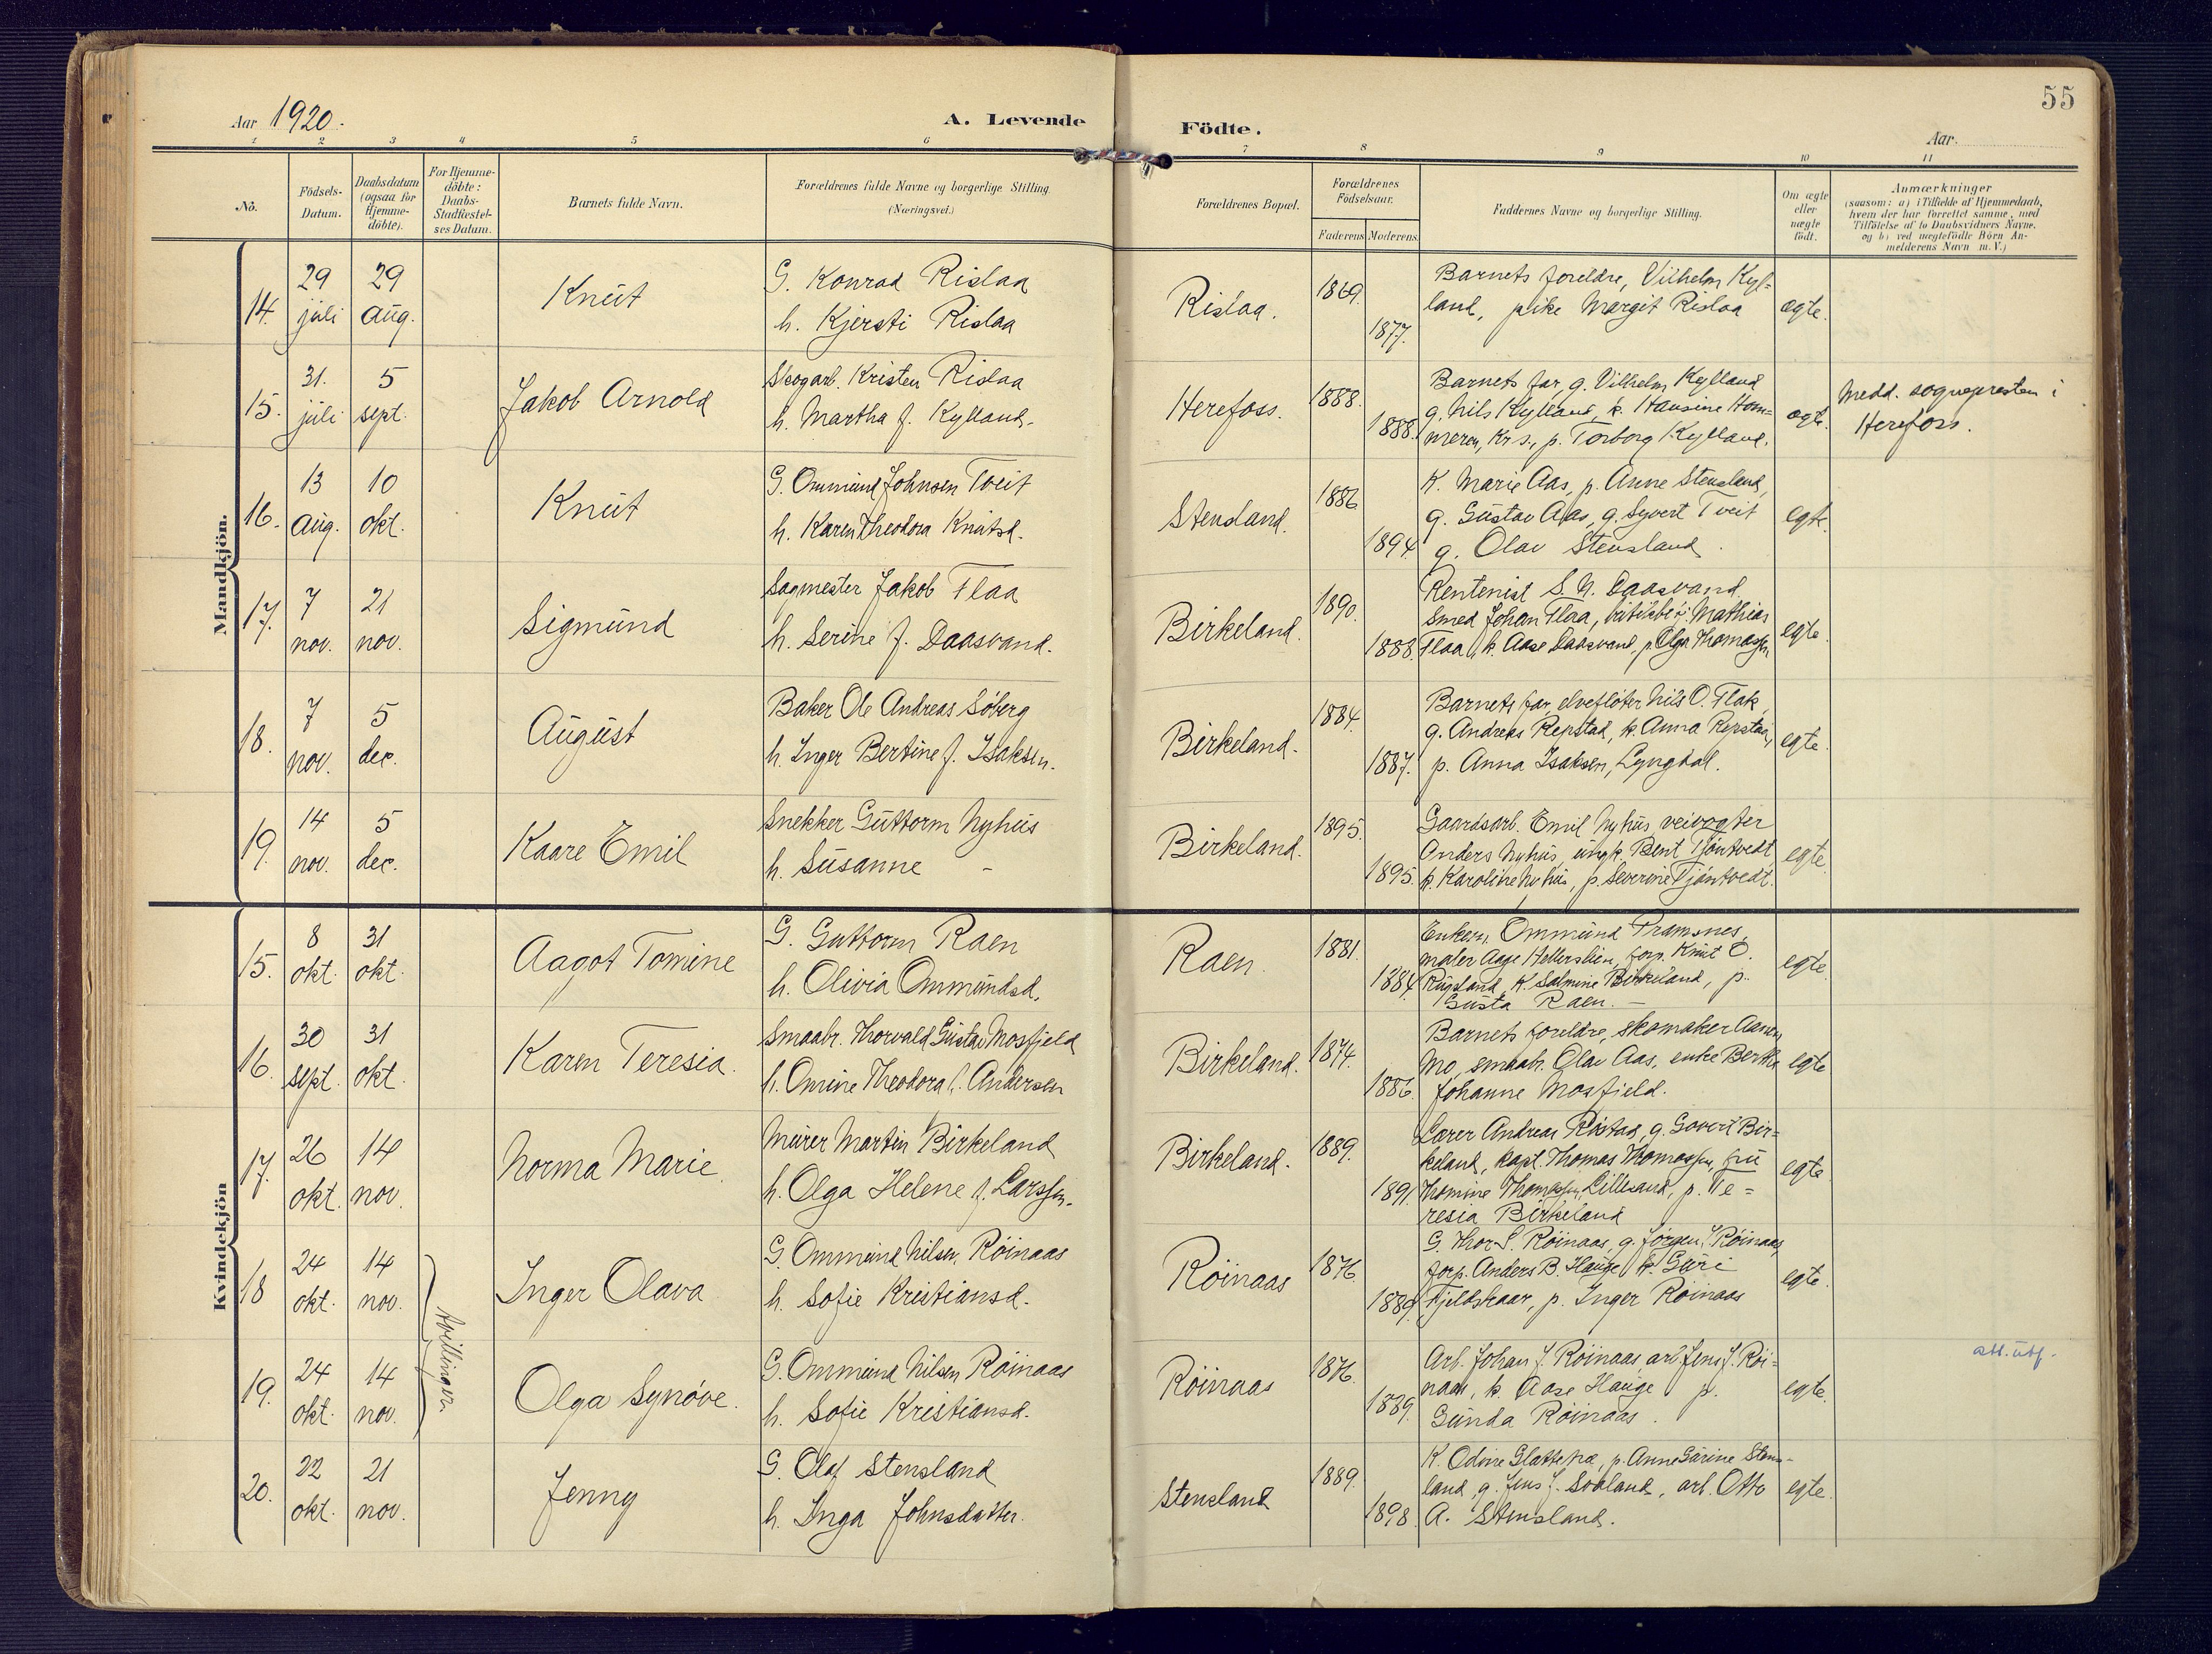 55
Aar 1920.
A. Levende Födte.
Aar
1 2 3 4 5 6 7 8 9 10 11
No.
Födsels-
Datum.
Daabsdatum
(ogsaa for
Hjemme-
döbte).
For Hjemme-
döbte:
Daabs-
Stadfæstel-
ses Datum.
Barnets fulde Navn.
Forældrenes fulde Navne og borgerlige Stilling
(Næringsvei.)
Forældrenes Bopæl.
Forældrenes
Födselsaar.
Faderens Moderens.
Faddernes Navne og borgerlige Stilling.
Om ægte
eller
uægte
födt.
Anmærkninger
(saasom: a) i Tilfælde af Hjemmedaab,
hvem der har forrettet samme, med
Tilföielse af to Daabsvidners Navne.
og b) ved uægtefödte Börn An-
melderens Navn m. V.)
Mandkjön.
14. 29 juli
29 aug.
Knut
G. Konrad Rislaa
h. Kjersti Rislaa
Rislaa.
1869.
1877.
Barnets foreldre, Vilhelm Kyl=
land, pike Margit Rislaa
ægte.
15. 31. juli
5 sept.
Jakob Arnold
Skogarb. Kristen Rislaa
h. Martha f. Kylland.
Herefoss.
1888.
1888.
Barnets far, g. Vilhelm Kylland
g. Nils Kylland, k. Hansine Hom=
meren, Kr.s., p. Torborg Kylland.
ægte.
Medd. sognepresten i
Herefoss.
16. 13 aug.
10 okt.
Knut
G. Ommund Johnsen Tveit
h. Karen Theodora Knutsd.
Stensland.
1886
1894
K. Marie Aas, p. Anne Stensland,
g. Gustav Aas, g. Syvert Tveit
g. Olav Stensland.
egte.
17. 7 nov.
21 nov.
Sigmund
Sagmester Jakob Flaa
h. Serine f. Daasvand.
Birkeland.
1890.
1888.
Rentenist S. N. Daasvand.
Smed Johan Flaa, Mathias
Flaa, k. Aase Daasvand, p. Olga Thomassen
egte.
18. 7 nov.
5 dec.
August
Baker Ole Andreas Söberg
h. Inger Bertine f. Isaksen.
Birkeland.
1884.
1887.
Barnets far, elvefløter Nils O. Flak,
g. Andreas Repstad, k. Anna Repstad,
p. Anna Isaksen, Lyngdal.
egte.
19. 14 nov.
5 dec.
Kaare Emil
Snekker Guttorm Nyhus
h. Susanne -
Birkeland.
1895.
1895.
Gaardsarb. Emil Nyhus, veivogter
Anders Nyhus, ungk. Bent Tjöntvedt
k. Karoline Nyhus, p. Severine Tjöntvedt.
egte.
Kvindekjön
15. 8 okt.
31 okt.
Aagot Tomine
G. Guttorm Raen
h. Olivia Ommundsd.
Raen.
1881.
1884.
Enkem. Ommund Tramsnes,
maler Aage Hellerslien, forp. Knut O.
Rugsland, K. Salmine Birkeland, p.
Gusta Raen.
egte.
16. 30 sept.
31 okt.
Karen Teresia.
Smaabr. Thorvald Gustav Mosfjeld
h. Omine Theodora f. Andersen
Birkeland.
1874.
1886.
Barnets foreldre, skomaker Aanen
Mo, smaabr. Olav Aas, enke Berthe
Johanne Mosfjeld.
egte
17. 26 okt.
14 nov.
Norma Marie.
Murer Martin Birkeland
h. Olga Helene f. Larssen.
Birkeland.
1889.
1891.
Lærer Andreas g. Govert Bir=
keland, kapt. Thomas Thomassen, fru
Thomine Thomassen, Lillesand, p. Te=
resia Birkeland
egte.
18 24 okt.
14 nov.
tvillinger.
Inger Olava
G. Ommund Nilsen Röinaas
h. Sofie Kristiansd.
Röinaas
1876.
1889.
G. Thor S. Röinaas, g. Jörgen Röinaas,
forp. Anders B. Hauge, k. Guri
Fjeldskaar, p. Inger Röinaas
egte.
19. 24 okt.
14 nov.
Olga Synöve.
G. Ommund Nilsen Röinaas
h. Sofie Kristiansd.
Röinaas
1876.
1889.
Arb. Johan J. Röinaas, arb. Jens J. Röi=
naas, k. Aase Hauge p.
Gunda Röinaas.
egte.
att. utf.
20. 22 okt.
21 nov.
Jenny
G. Olaf Stensland
h. Inga Johnsdatter.
Stensland
1889.
1898.
K. Odine Glattetræ, p. Anne Gurine Stens-
land, g. Jens J. Sodland, arb. Otto
A. Stensland.
egte.